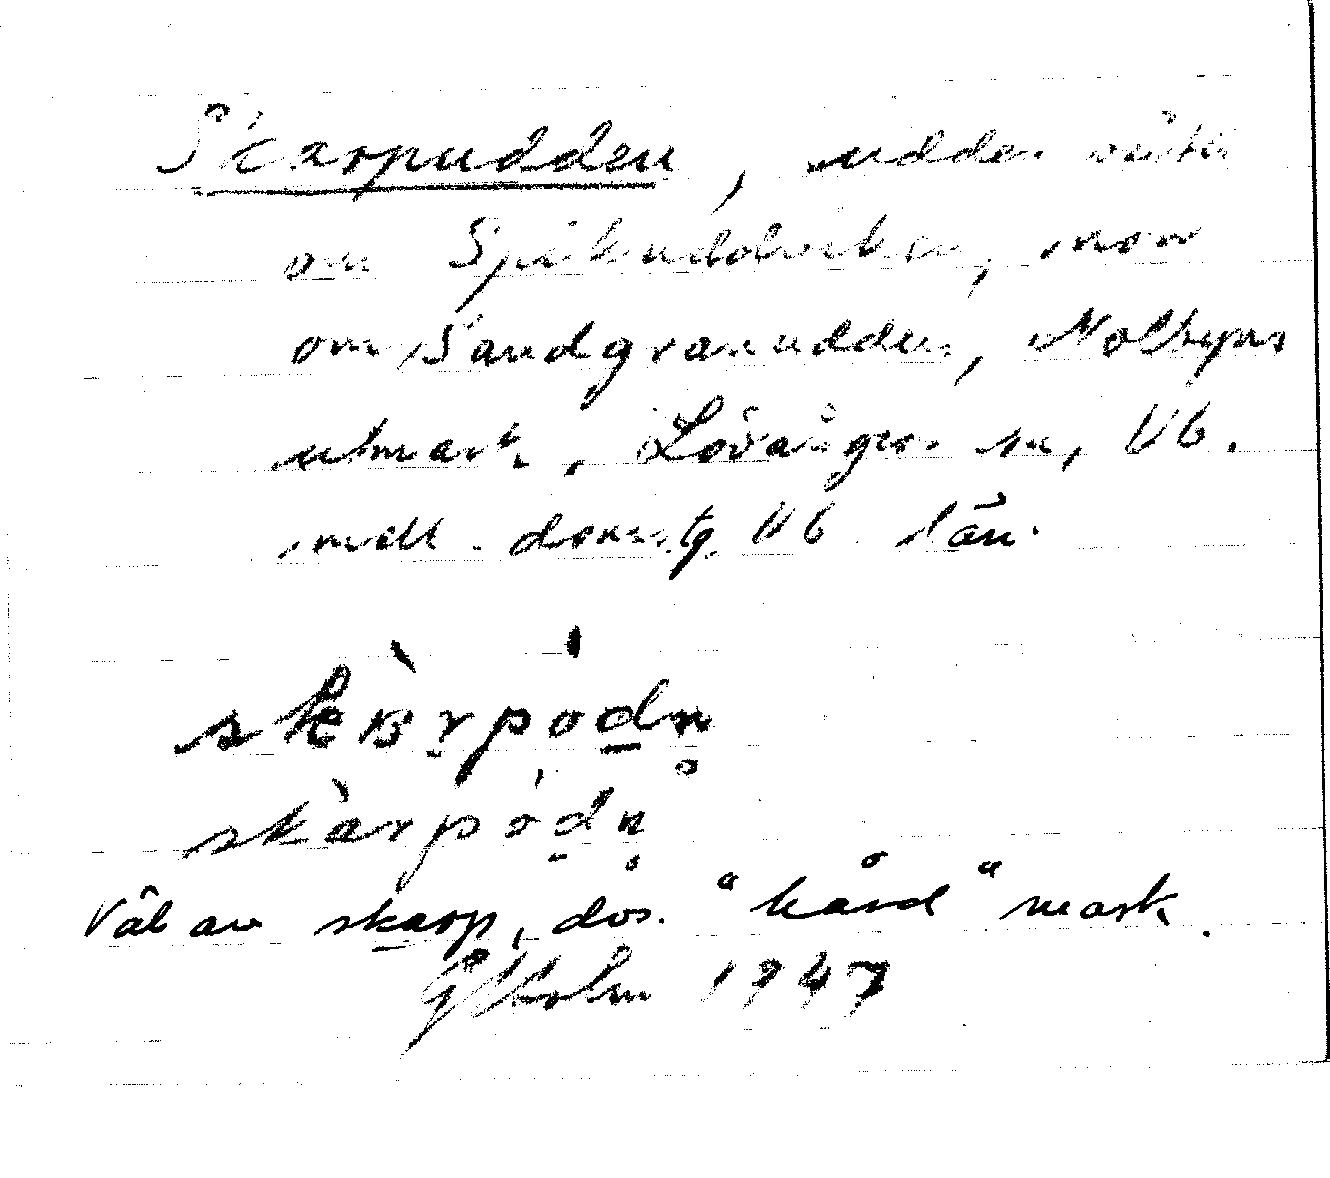 Skarpudden, udde väster
om Spikuddviken, norr
om Sandgranudden, Noltyns
utmark, Lövångers sn, Vb.
mell. domsg. Vb län.
skàrpódn̥
Väl av skarp, dvs. "hård" mark.
GHolm 1947